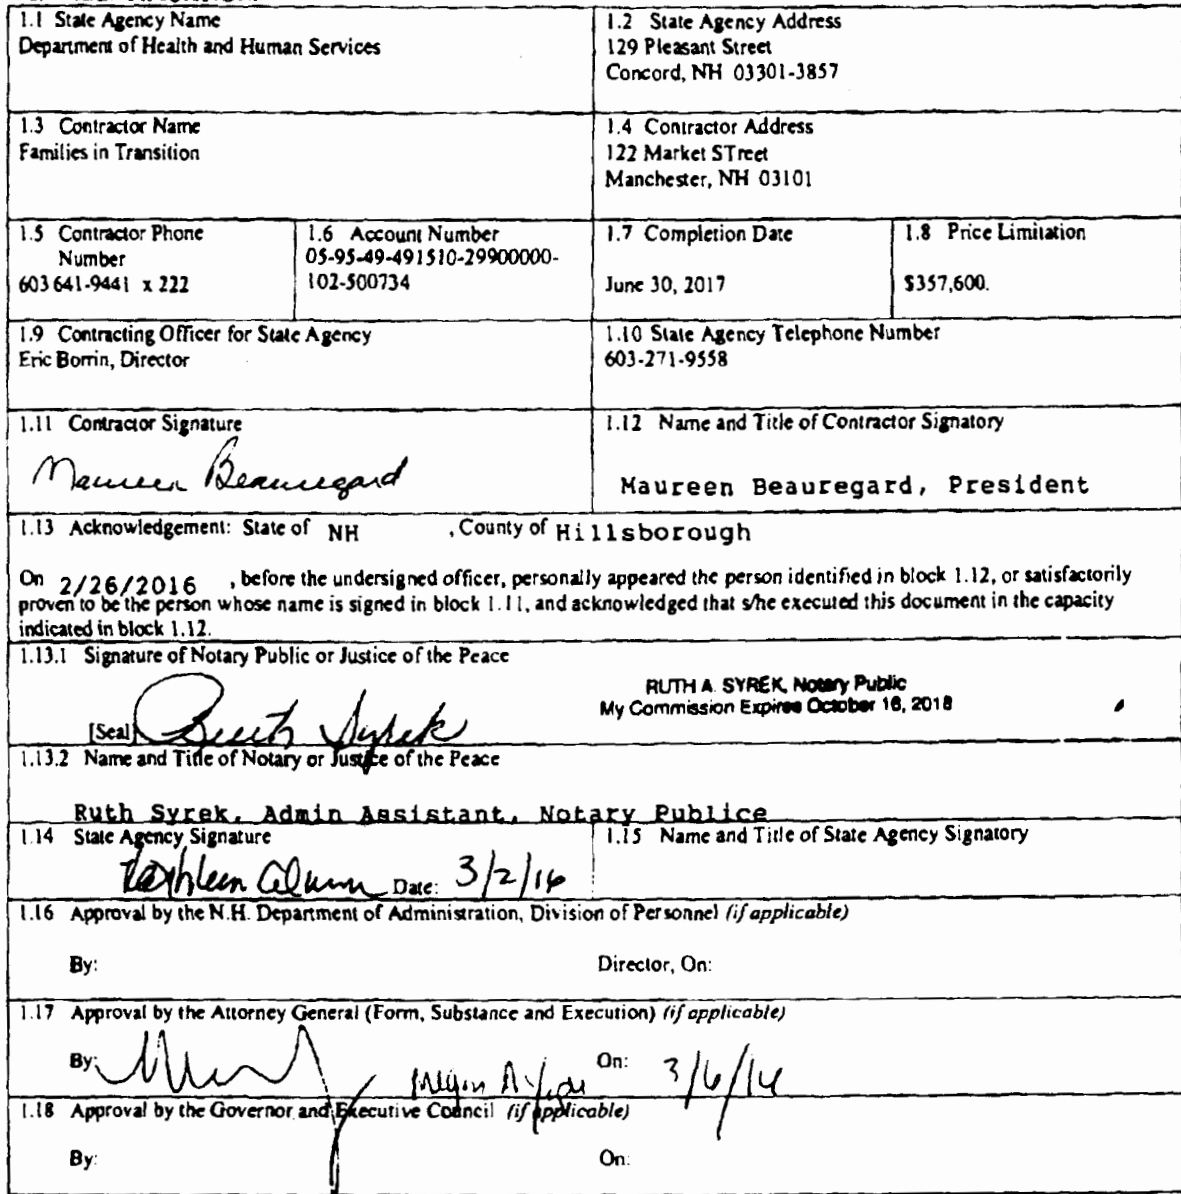 1.1 State Agency Name
Department of Health and Human Services
1.2 State Agency Address
129 Pleasant Street
Concord, NH 03301-3857
1.3 Contractor Name
Families in Transition
1.4 Contractor Address
122 Market STreet
Manchester, NH 03101
1.5 Contractor Phone
Number
603 641-9441 x 222
1.6 Account Number
05-95-49-491510-29900000-
102-500734
1.7 Completion Date
June 30, 2017
1.8 Price Limitation
$357,600.
1.9 Contracting Officer for State Agency
Eric Borrin, Director
1.10 State Agency Telephone Number
603-271-9558
1.11 Contractor Signature
Maureen Beauregard
1.12 Name and Title of Contractor Signatory
Maureen Beauregard, President
1.13 Acknowledgement: State of NH , County of Hillsborough
On 2/26/2016 , before the undersigned officer, personally appeared the person identified in block 1.12, or satisfactorily
proven to be the person whose name is signed in block 1.11, and acknowledged that s/he executed this document in the capacity
indicated in block 1.12.
1.13.1 Signature of Notary Public or Justice of the Peace
RUTH A. SYREK, Notary Public
My Commission Expires October 16, 2018
[Seal] Ruth Syrek
1.13.2 Name and Title of Notary or Justice of the Peace
Ruth Syrek, Admin Assistant, Notary Publice
1.14 State Agency Signature
Kathleen Date: 3/2/16
1.15 Name and Title of State Agency Signatory
1.16 Approval by the N.H. Department of Administration, Division of Personnel (if applicable)
By:
Director, On:
1.17 Approval by the Attorney General (Form, Substance and Execution) (if applicable)
By: On:
1.18 Approval by the Governor and Executive Council (if applicable)
By:
On: